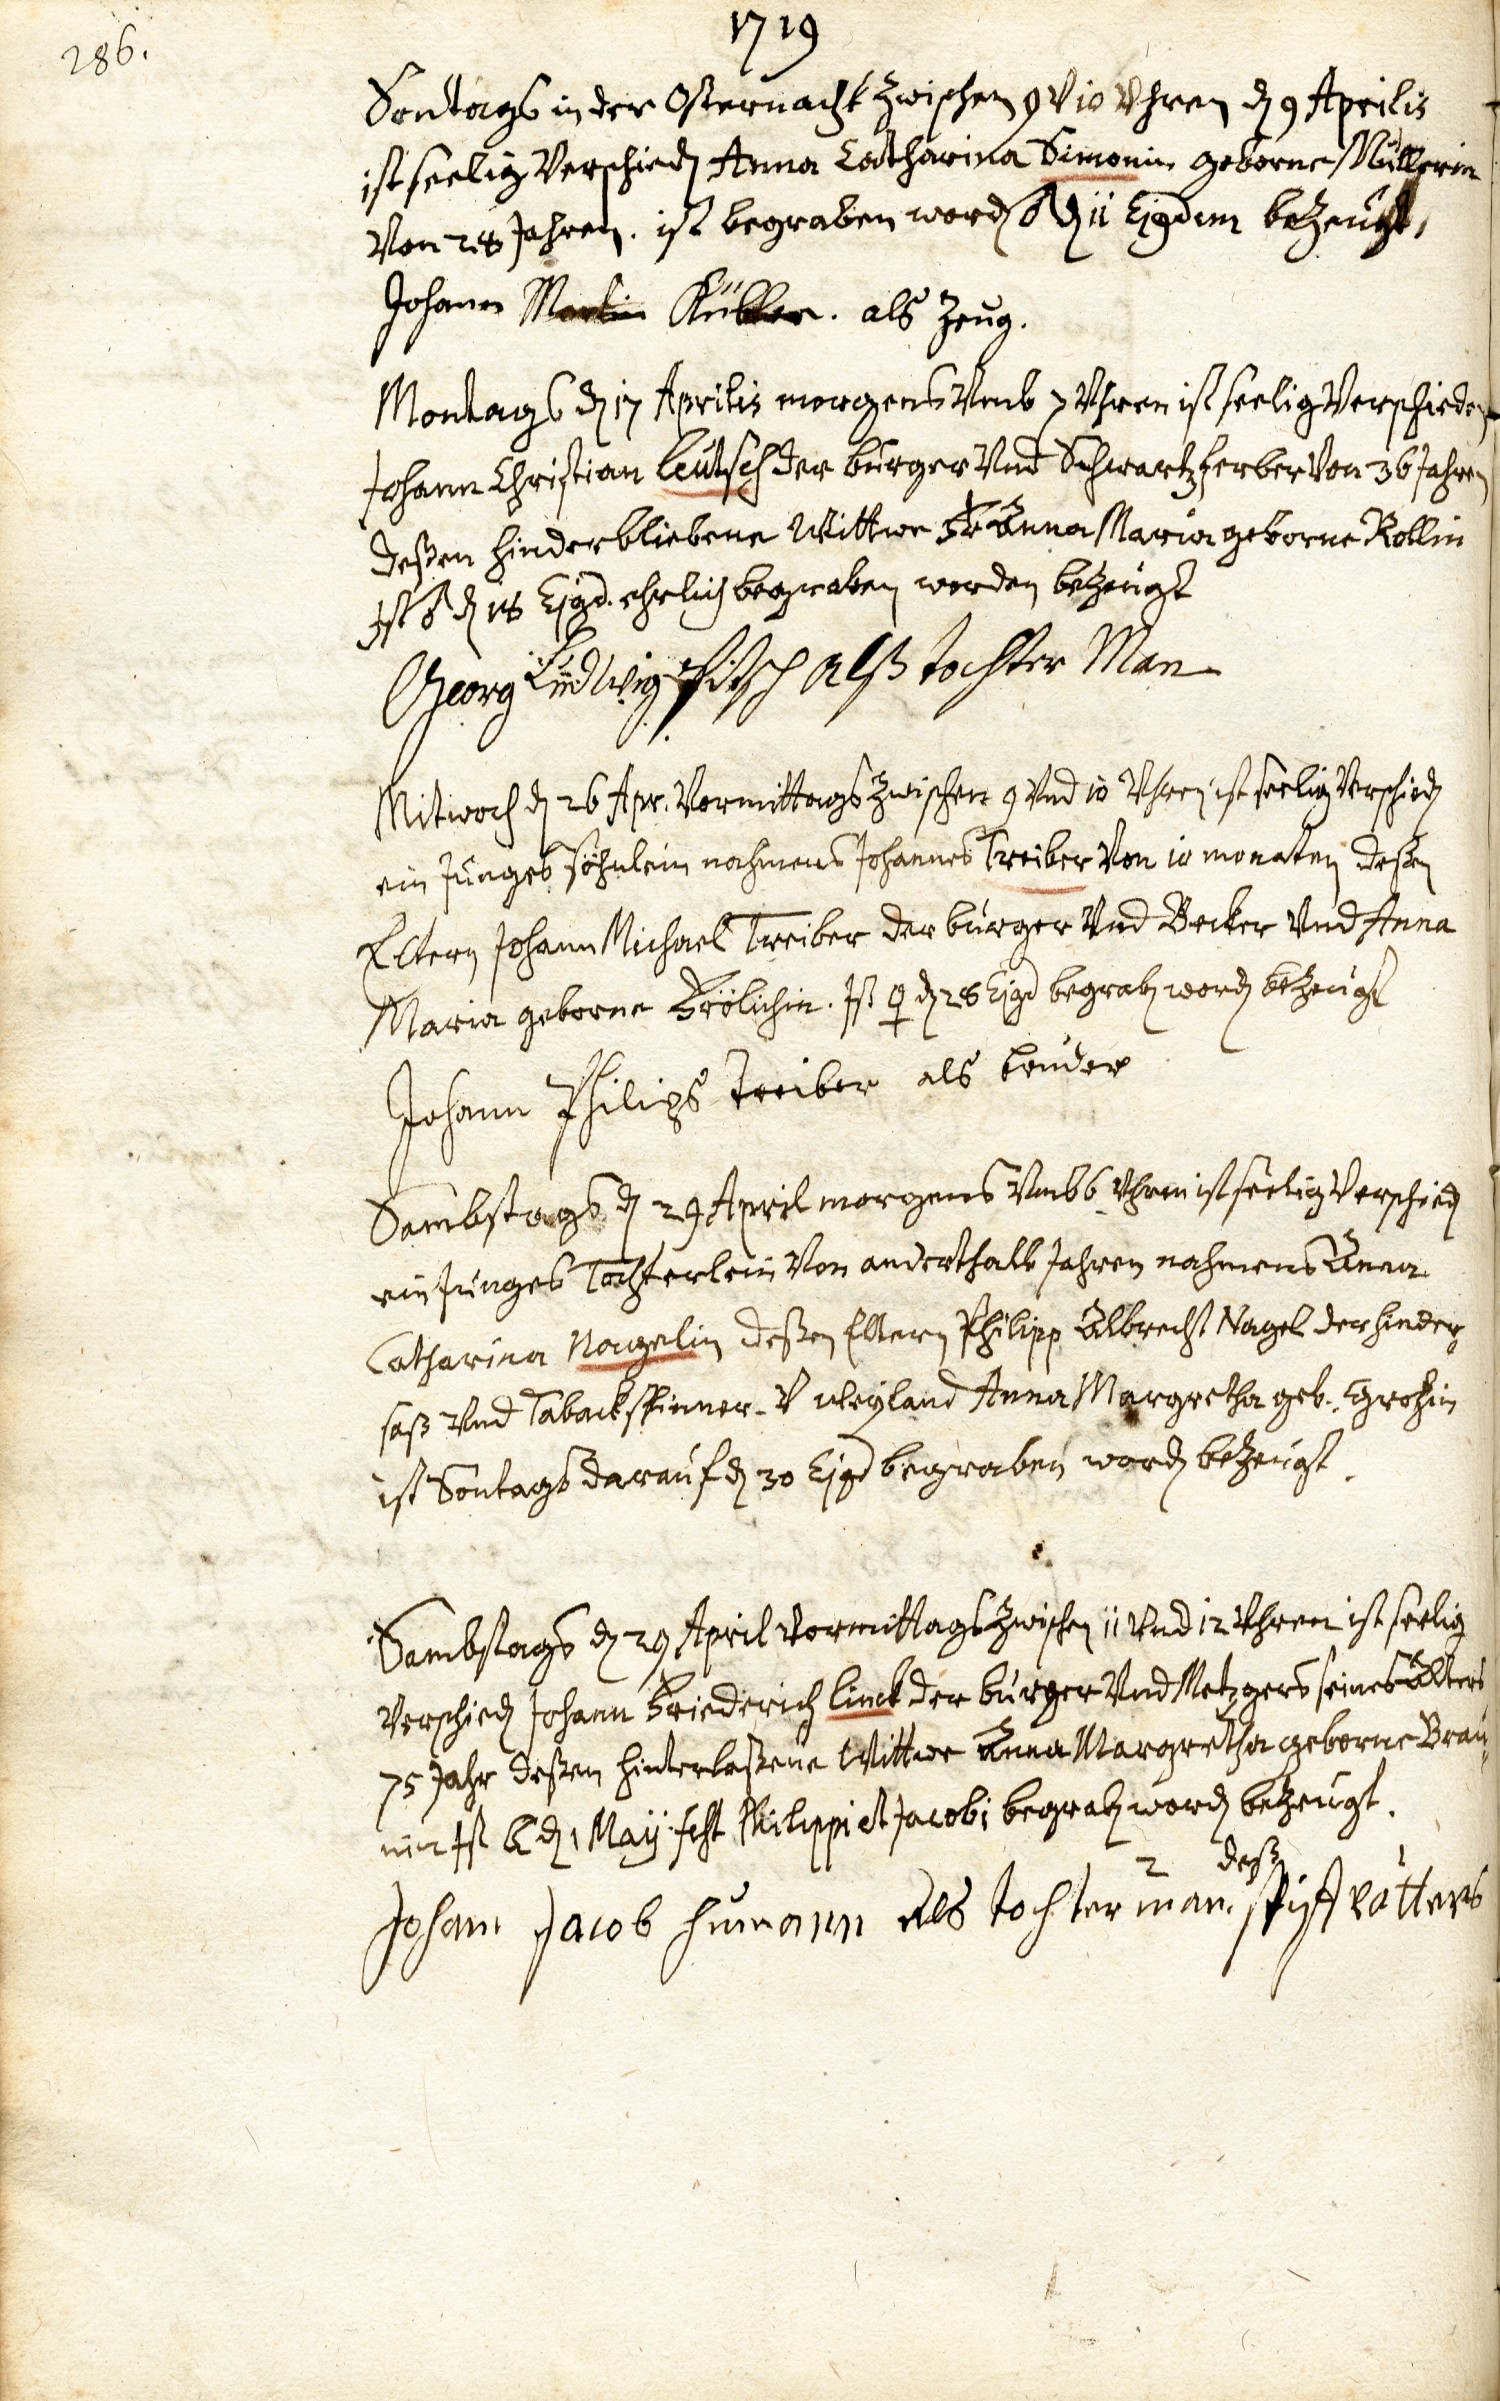 286.
1719
Sontags in der Osternacht zwischen 9 v 10 Uhren d 9 Aprilis
ist seelig verschied Anna Catharina Simonin geborne Müllerin
von 28 Jahren. ist begraben word ♂ d 11 Ejusdem betzeugt,
Johann Martin Kübler. als Zeug.
Montags d 17 Aprilis morgens umb 7 Uhren ist seelig verschieden
Johann Christian Leutsch der burger und Schwartzferber von 36 Jahren
deßen hinderbliebene Wittwe Anna Maria geborne Rollin
Ist ♂ d 18 Ejusd. ehrlich begraben worden betzeugt
Georg Ludwig alß tochter Man
Mitwoch d 26 Apr. Vormittags zwischen 9 und 10 Uhren ist seelig verschied
ein Junges söhnlein nahmens Johannes Treiber von 10 monaten deßen
Eltern Johann Michael Treiber der burger und Becker und Anna
Maria geborne Frölichin. Ist ♀ d 28 Ejusd begrab word betzeugt
Johann Philips Treiber als bruder
Sambstags d 29 April morgens umb 6 Uhren ist seelig verschied
ein Junges Töchterlein von anderthalb Jahren nahmens Anna
Catharina Nagelin deßen Eltern Philipp Albrecht Nagel der hinder=
saß und Taback spinner. v weyland Anna Margretha geb. Grotzin
ist Sontags darauf d 30 Ejusd begraben word betzeugt.
Sambstags d 29 April vormittags zwischen 11 und 12 Uhren ist seelig
verschied Johann Friederich Linck der burger und Metzgers seines Alters
75 Jahr deßen hinterlaßene Wittwe Anna Margretha geborne Brau=
nin Ist d 1 Maij fest Philippi et Jacobi begrab word betzeugt.
2 deß 1
Johann Jacob humann als tochter man. vatters